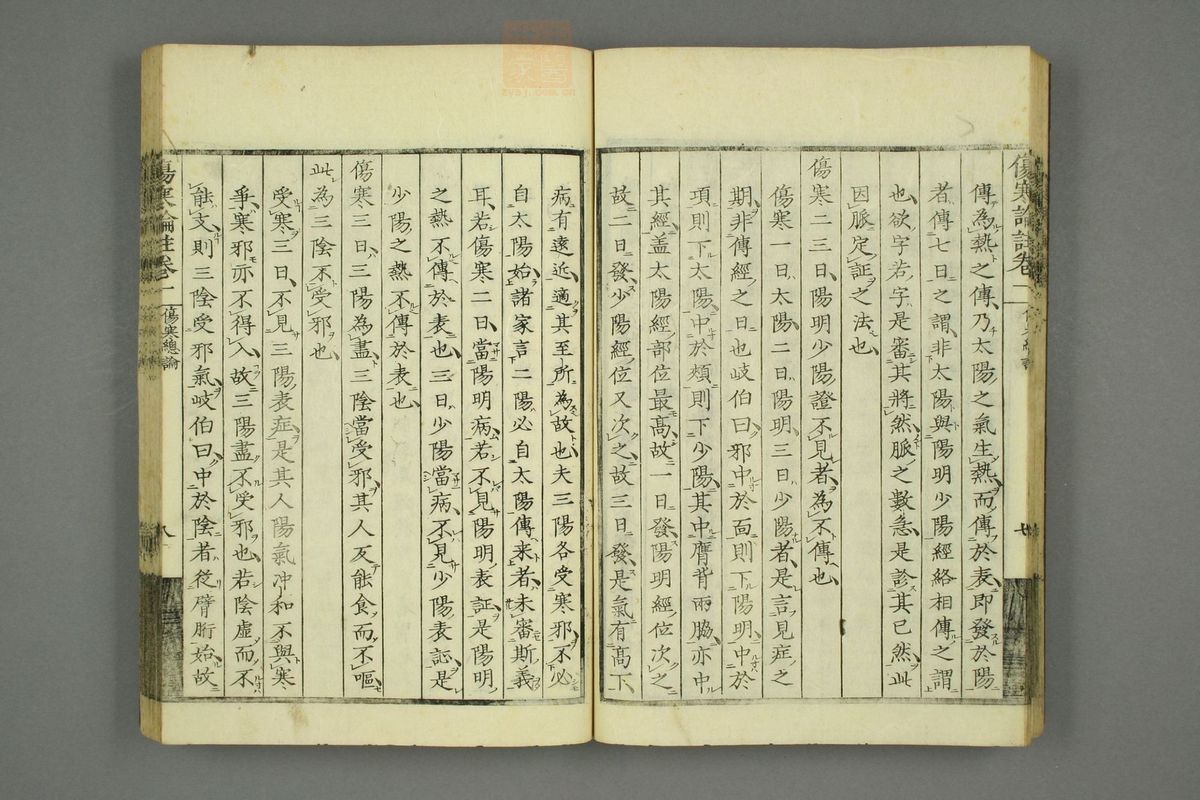 傷寒論註卷一
七
傳為熱之傳乃太陽之氣生熱而傳於表即發於陽
者傳七日之謂非太陽與陽明少陽經絡相傳之謂
也欲字若字是審其將然脈之數急是診其已然此
因脈定証之法也
傷寒二三日陽明少陽證不見者為不傳也
傷寒一日太陽二日陽明三日少陽者是言見症之
期非傳經之日也岐伯曰邪中於面則下陽明中於
項則下太陽中於頰則下少陽其中膺背兩脇亦中
其經盖太陽經部位最高故一日發陽明經位次之
故二日發少陽經位又次之故三日發是氣有高下
病有遠近適其至所為故也夫三陽各受寒邪不必
自太陽始諸家言二陽必自太陽傳来者未審斯義
耳若傷寒二日當陽明病若不見陽明表証是陽明
之熱不傳於表也三日少陽當病不見少陽表証是
少陽之熱不傳於表也
傷寒三日三陽為盡三陰當受邪其人反能食而不嘔
此為三陰不受邪也
受寒三日不見三陽表症是其人陽氣冲和不與寒
爭寒邪亦不得入故三陽盡不受邪也若陰虛而不
能支則三陰受邪氣岐伯曰中於陰者從臂胻始故
傷寒論註卷一
傷寒總論
八